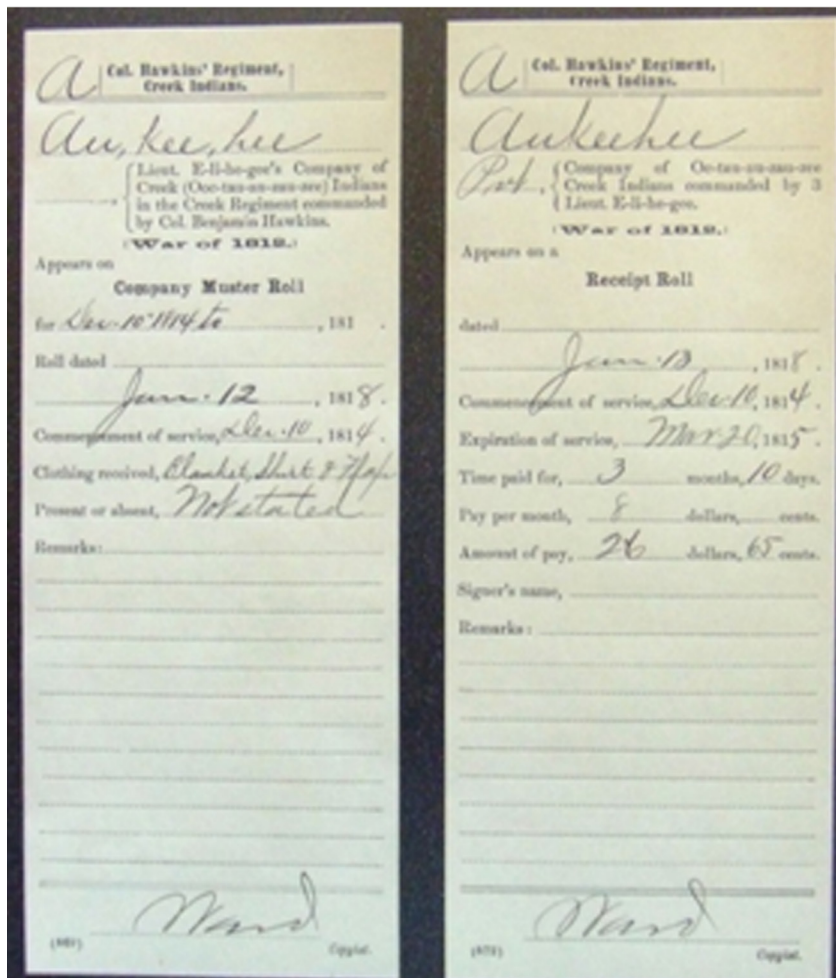 A
Col. Hawkins' Regiment,
Creek Indians.
Au, kee, hee
Lieut. E-li-he-gee's Company of
Creek (Ooc-tau-au-zau-zee) Indians
in the Creek Regiment commanded
by Col. Benjamin Hawkins.
(War of 1812.)
Appears on
Company Muster Roll
for Dec. 10 1814 to , 181 .
Roll dated
Jan. 12 , 1818.
Commencement of service, Dec. 10 , 1814.
Clothing received, Blanket, Shirt & Flap
Present or absent, Not stated
Remarks:
Ward
Copyist.
A
Col. Hawkins' Regiment,
Creek Indians.
Aukeehee
Pvt.,
Company of Oc-tau-au-zau-zee
Creek Indians commanded by 3
Lieut. E-li-he-gee.
(War of 1812.)
Appears on a
Receipt Roll
dated
Jan. 13 , 1818.
Commencement of service, Dec. 10, 1814.
Expiration of service, Mar 20, 1815.
Time paid for, 3 months, 10 days.
Pay per month, 8 dollars, cents.
Amount of pay, 26 dollars, 65 cents.
Signer's name,
Remarks:
Ward
Copyist.